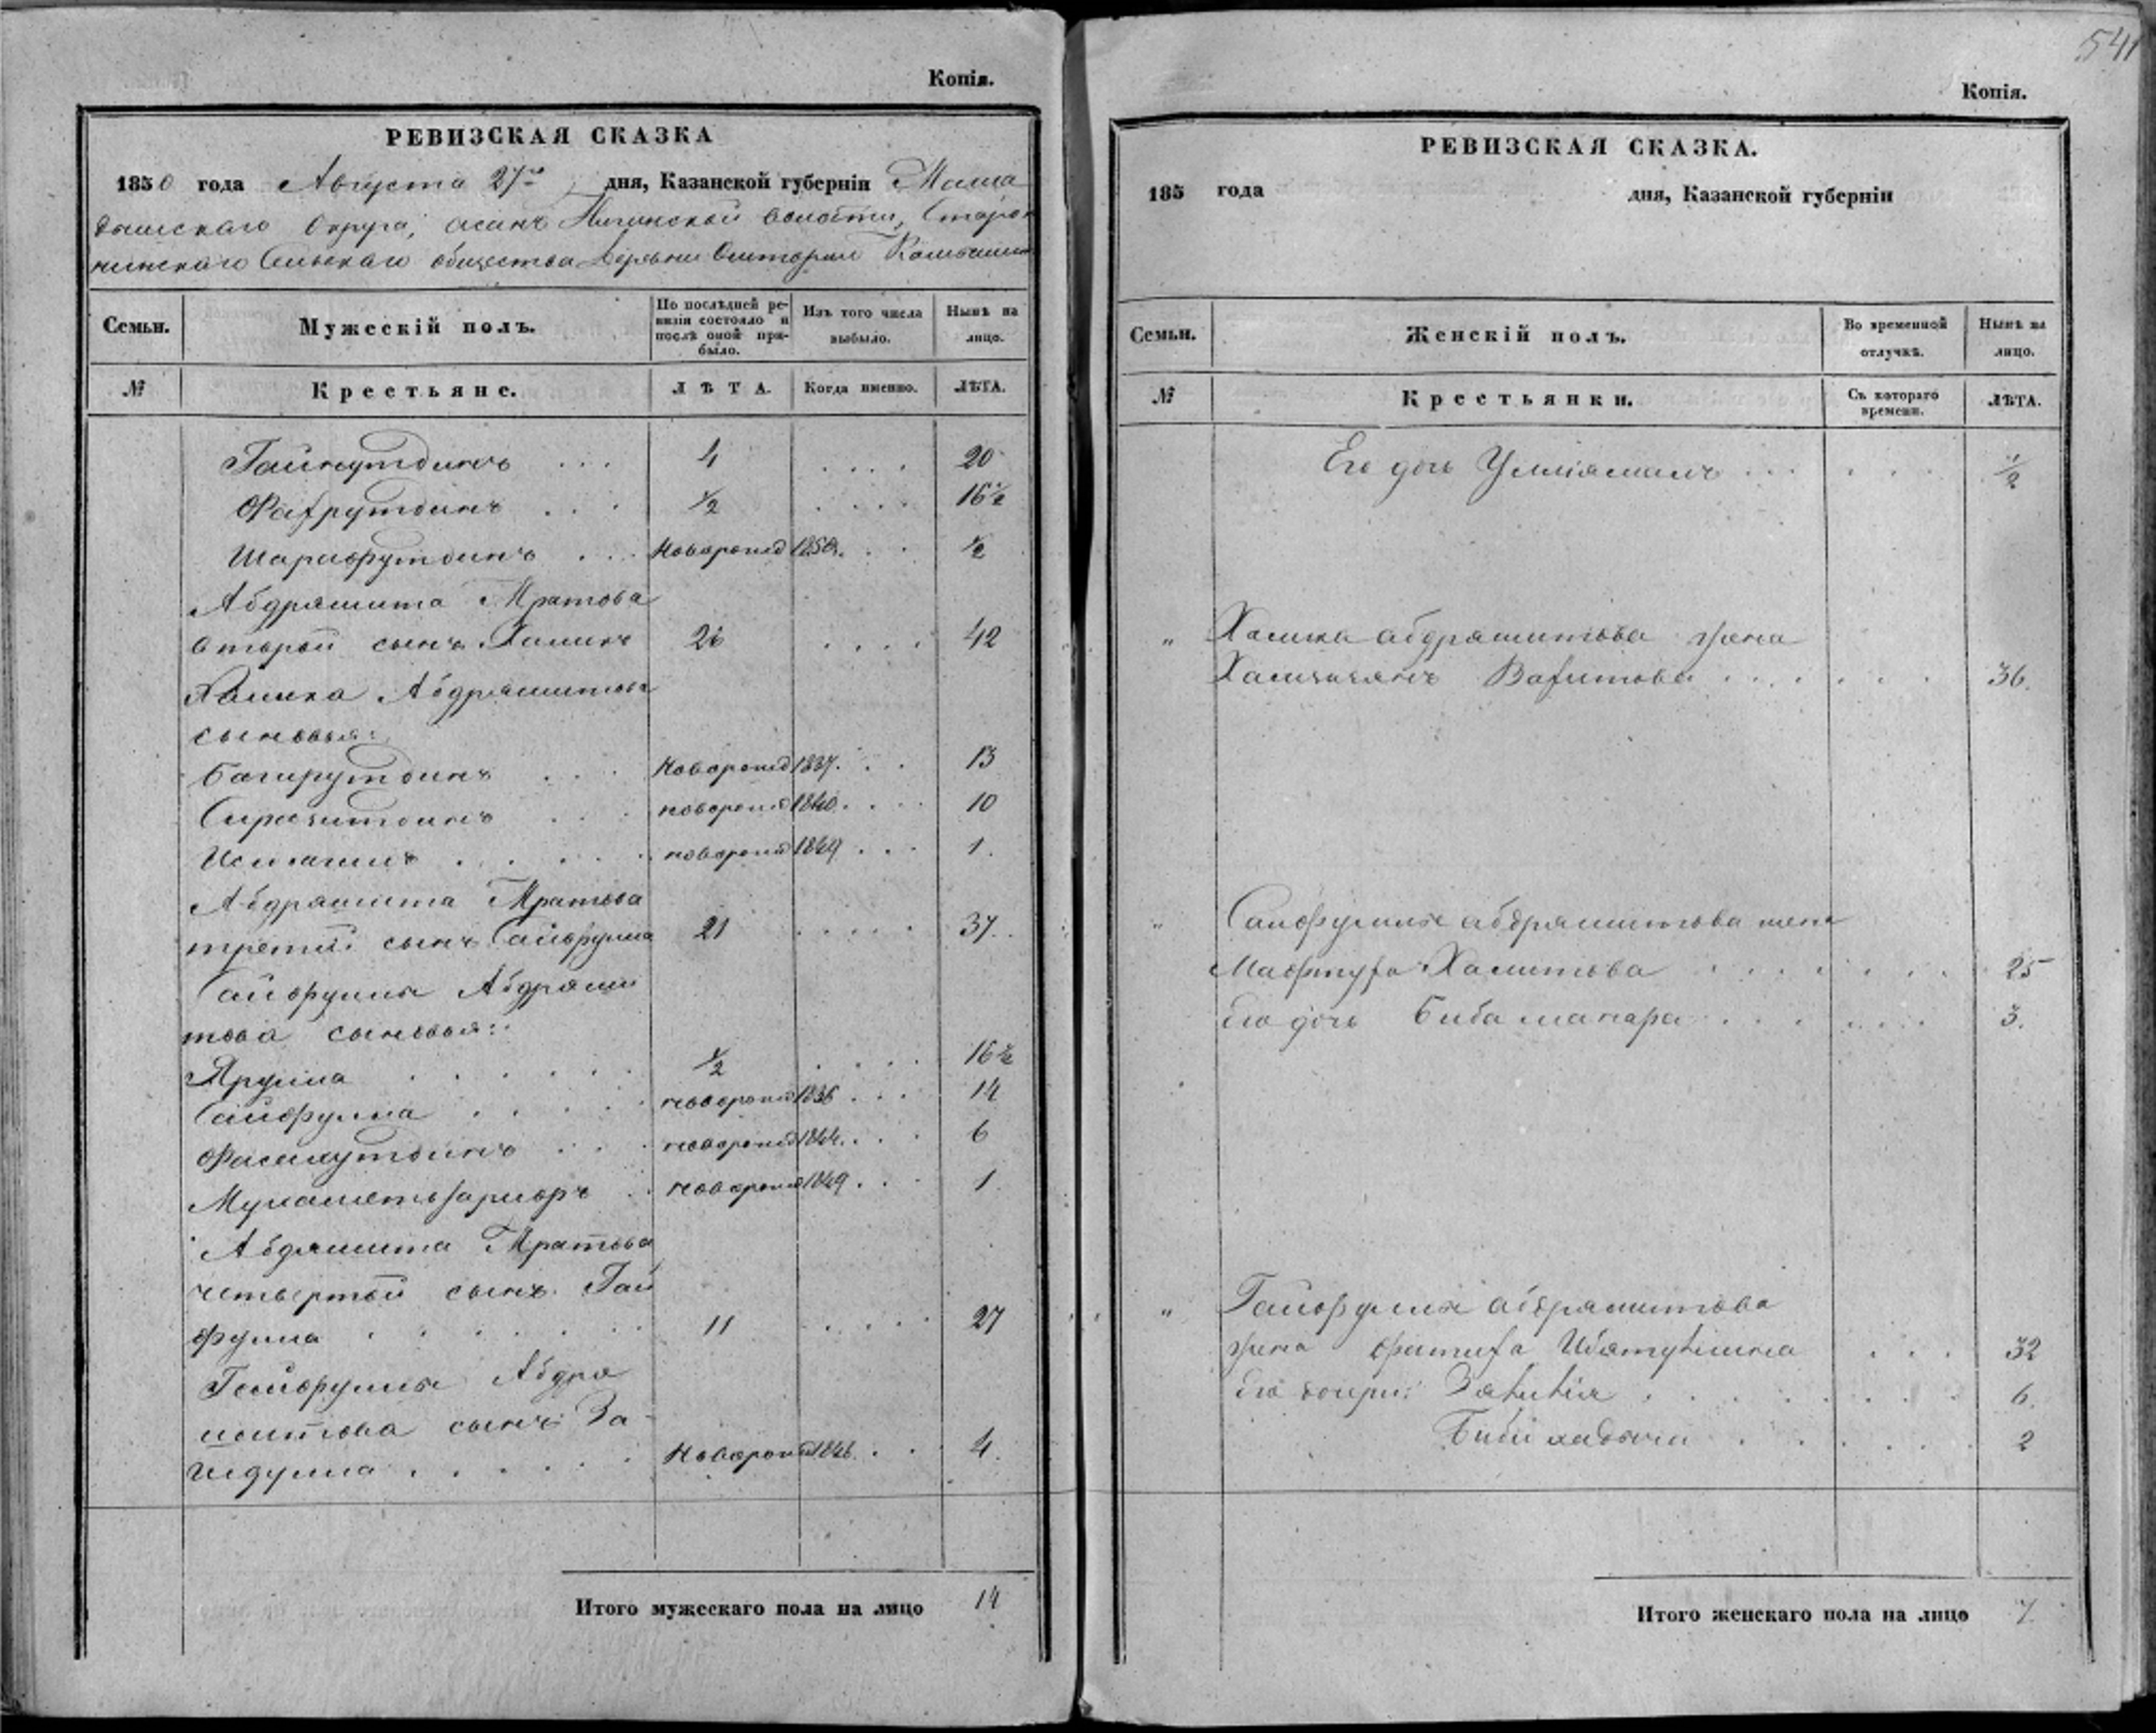 Копія.
РЕВИЗСКАЯ СКАЗКА
1850 года Августа 27го дня, Казанской губерніи Мама
дышскаго Округа, Волости,
Сельскаго общества Деревни
Семьи.
Мужескій полъ.
По послѣдней ре-
визіи состояло и
послѣ оной при-
было.
Изъ того числа
выбыло.
Нынѣ на
лицо.
№
Крестьяне.
ЛѢТА.
Когда именно.
ЛѢТА.
Гайнутдинъ 4 20
Фахрутдинъ ½ 16½
Шарафутдинъ Новорожд 1850. ½
Абдряшита Мратова
второй сынъ Халикъ 26 42
Халика Абдряшитова
сыновья:
Багирутдинъ Новорожд 1837. 13
Сиразитдинъ новорожд 1840. 10
Исмагилъ новорожд 1849 1.
Абдряшита Мратова
третій сынъ Сайфулла 21 37.
Сайфуллы Абдряши
това сыновья:
Ярулла ½ 16½
Сайфулла новорожд 1836 14
новорожд 1844. 6
новорожд 1849 1
Абдяшита Мратова
четвертой сынъ Гай
фулла 11 27
Гайфуллы Абдря
шитова сынъ За-
гидулла Новорожд 1846. 4.
Итого мужескаго пола на лицо 14
541
Копія.
РЕВИЗСКАЯ СКАЗКА.
185 года дня, Казанской губерніи
Семьи.
Женскій полъ.
Во временной
отлучкѣ.
Нынѣ на
лицо.
№
Крестьянки.
Съ котораго
времени.
ЛѢТА.
Его дочь ½
„ Халика абдряшитова жена
Вахитова 36.
„ Сайфуллы абдряшитова жена
Халитова 25
Его дочь Биби 3.
„ Гайфуллы абдряшитова
жена Фатиха 32
Его дочери: 6.
Биби 2
Итого женскаго пола на лицо 7.